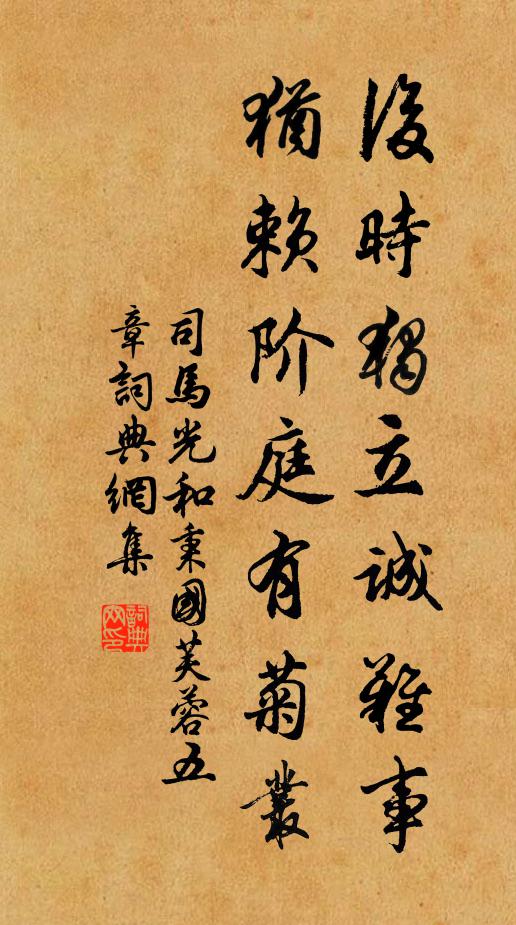 後時獨立誠難事
猶賴阶庭有菊叢
司馬光和秉國芙蓉五
章詞典網集
詞典網印